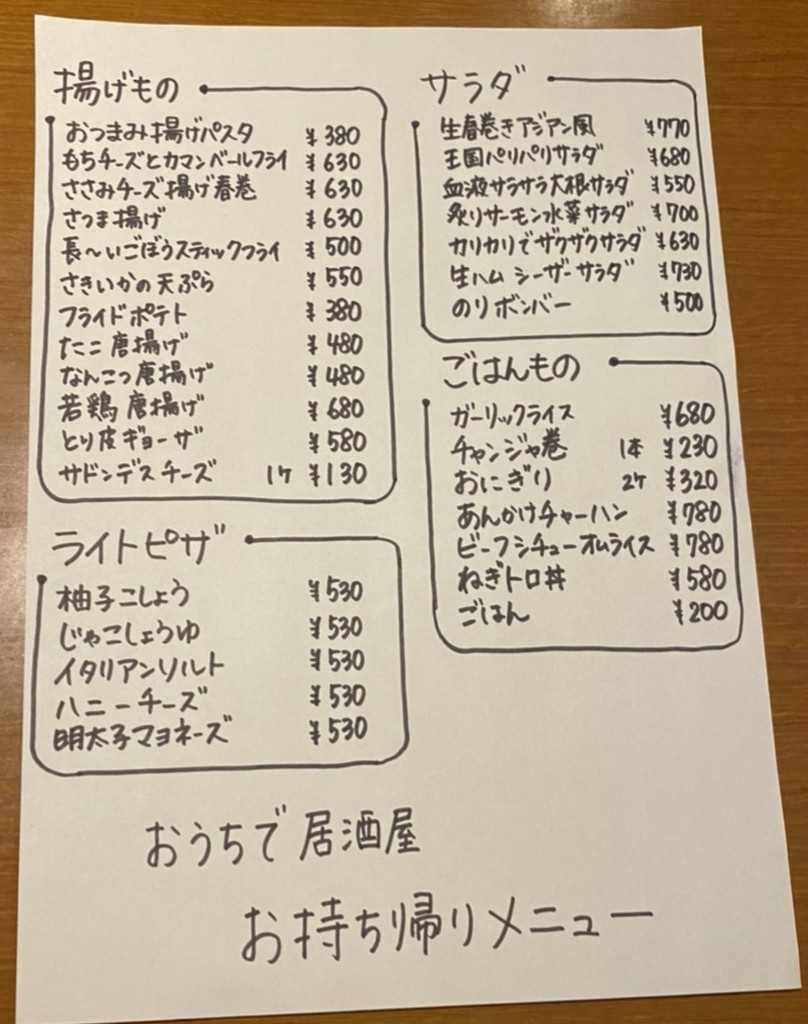 揚げもの
おつまみ揚げパスタ ¥380
もちチーズとカマンベールフライ ¥630
ささみチーズ揚げ春巻 ¥630
さつま揚げ ¥630
長〜いごぼうスティックフライ ¥500
さきいかの天ぷら ¥550
フライドポテト ¥380
たこ唐揚げ ¥480
なんこつ唐揚げ ¥480
若鶏唐揚げ ¥680
とり皮ギョーザ ¥580
サドンデスチーズ 1ケ ¥130
ライトピザ
柚子こしょう ¥530
じゃこしょうゆ ¥530
イタリアンソルト ¥530
ハニーチーズ ¥530
明太子マヨネーズ ¥530
サラダ
生春巻きアジアン風 ¥770
王国パリパリサラダ ¥680
血液サラサラ大根サラダ ¥550
炙りサーモン水菜サラダ ¥700
カリカリでザクザクサラダ ¥630
生ハムシーザーサラダ ¥730
のりボンバー ¥500
ごはんもの
ガーリックライス ¥680
チャンジャ巻 1本 ¥230
おにぎり 2ケ ¥320
あんかけチャーハン ¥780
ビーフシチューオムライス ¥780
ねぎトロ丼 ¥580
ごはん ¥200
おうちで居酒屋
お持ち帰りメニュー